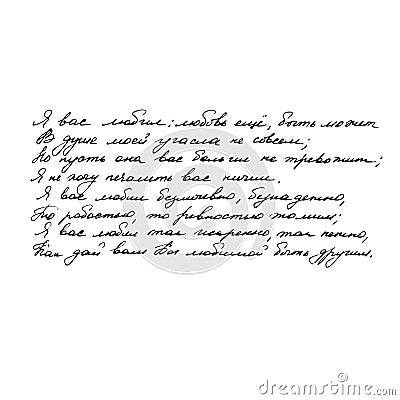 Я вас любил: любовь ещё, быть может
В душе моей угасла не совсем;
Но пусть она вас больше не тревожит;
Я не хочу печалить вас ничем.
Я вас любил безмолвно, безнадежно,
То робостью, то ревностью томим;
Я вас любил так искренно, так нежно,
Как дай вам Бог любимой быть другим.
dreamstime.com